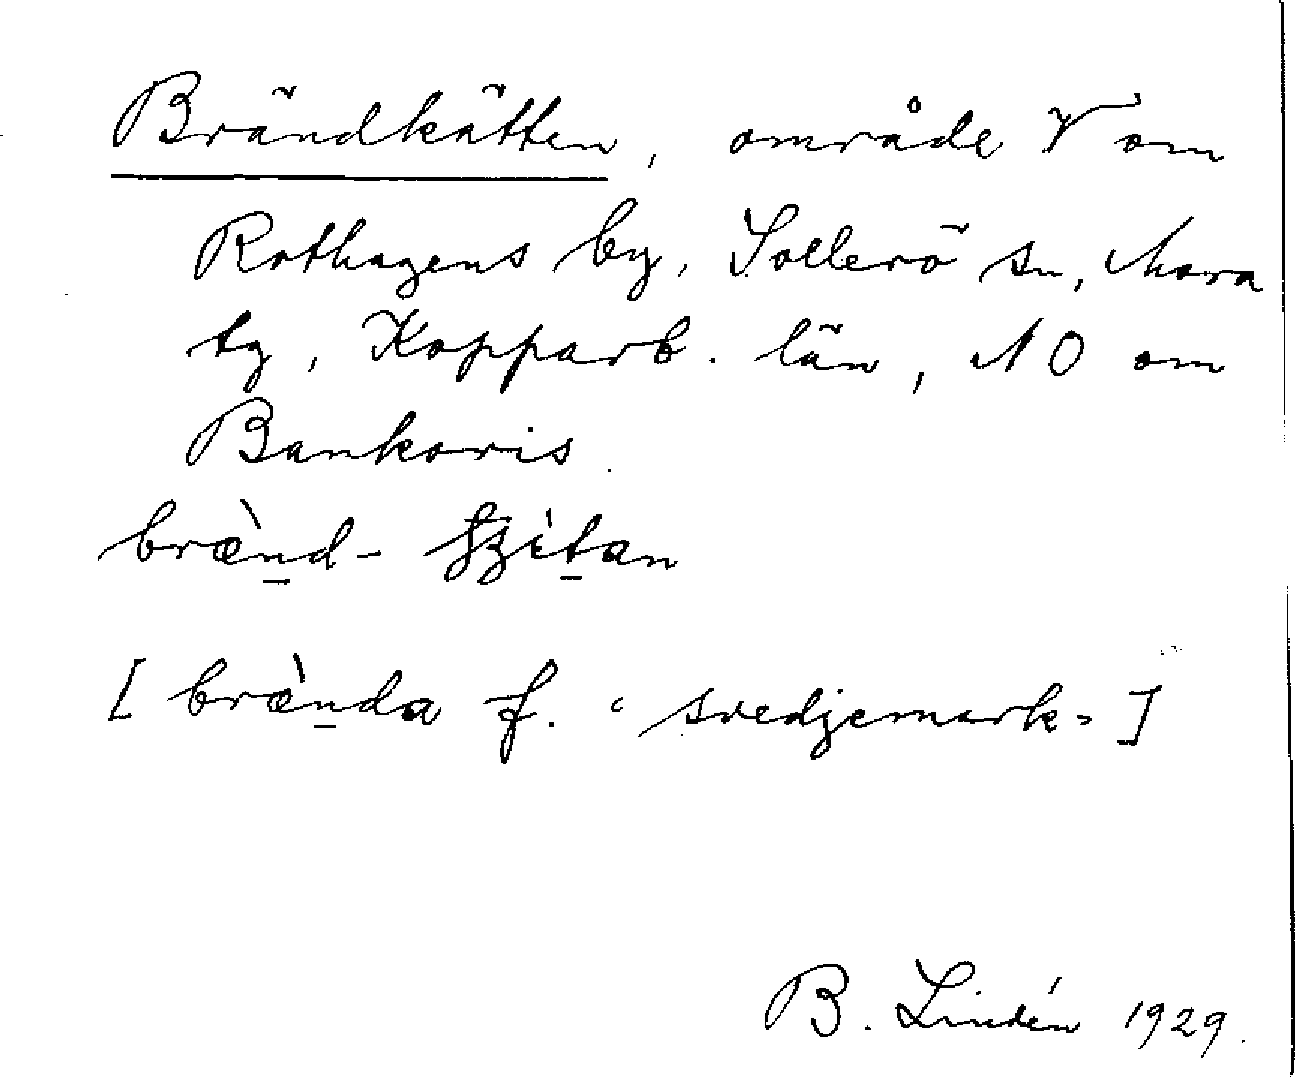 Brändkätten, område V om
Rothagens by, Sollerö sn, Mora
tg, Kopparb. län, NO om
Bankoris.
bræ̀nd-
[ bræ̀nda f. ‘svedjemark’ ]
B. Lindén 1929.